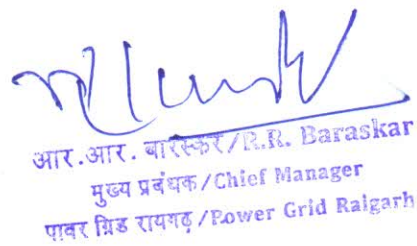 आर.आर. बारस्कर/R.R. Baraskar
मुख्य प्रबंधक/Chief Manager
पावर ग्रिड रायगढ़/Power Grid Raigarh